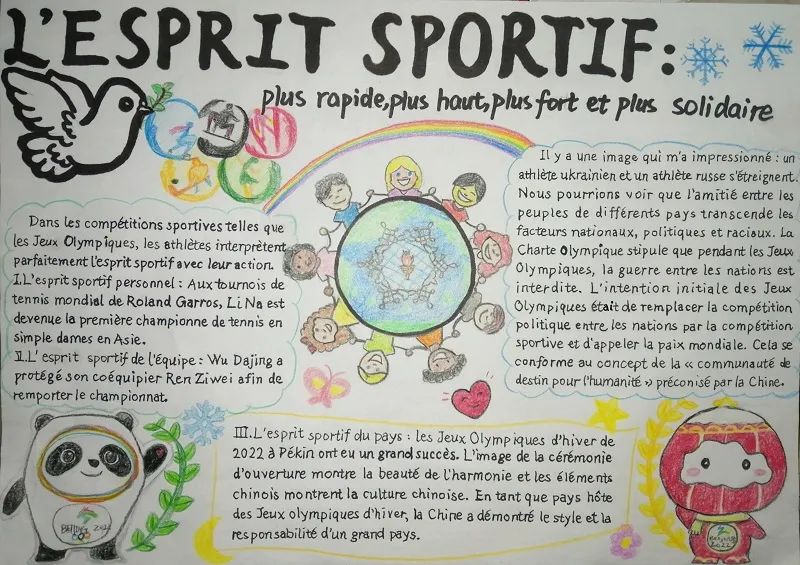 L'ESPRIT SPORTIF:
plus rapide,plus haut,plus fort et plus solidaire
Dans les compétitions sportives telles que
les Jeux Olympiques, les athlètes interprètent
parfaitement l'esprit sportif avec leur action.
I.L'esprit sportif personnel : Aux tournois de
tennis mondial de Roland Garros, Li Na est
devenue la première championne de tennis en
simple dames en Asie.
II.L'esprit sportif de l'équipe : Wu Dajing a
protégé son coéquipier Ren Ziwei afin de
remporter le championnat.
Il y a une image qui m'a impressionné : un
athlète ukrainien et un athlète russe s'étreignent.
Nous pourrions voir que l'amitié entre les
peuples de différents pays transcende les
facteurs nationaux, politiques et raciaux. La
Charte Olympique stipule que pendant les Jeux
Olympiques, la guerre entre les nations est
interdite. L'intention initiale des Jeux
Olympiques était de remplacer la compétition
politique entre les nations par la compétition
sportive et d'appeler la paix mondiale. Cela se
conforme au concept de la « communauté de
destin pour l'humanité » préconisé par la Chine.
III.L'esprit sportif du pays : les Jeux Olympiques d'hiver de
2022 à Pékin ont eu un grand succès. L'image de la cérémonie
d'ouverture montre la beauté de l'harmonie et les éléments
chinois montrent la culture chinoise. En tant que pays hôte
des Jeux olympiques d'hiver, la Chine a démontré le style et la
responsabilité d'un grand pays.
BEIJING 2022
2022